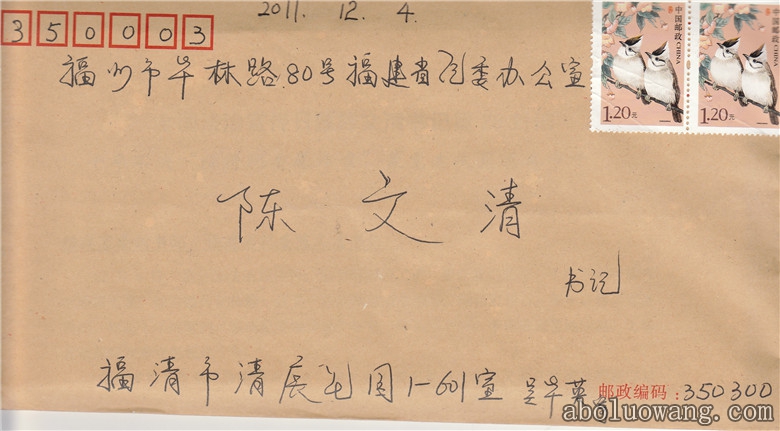 2011. 12. 4.
350003
中国邮政 CHINA
1.20元
中国邮政 CHINA
1.20元
福州市华林路80号福建省纪委办公室
陈文清
书记
福清市清辰花园1-601室 吴华英
邮政编码:350300
aboluowang.com